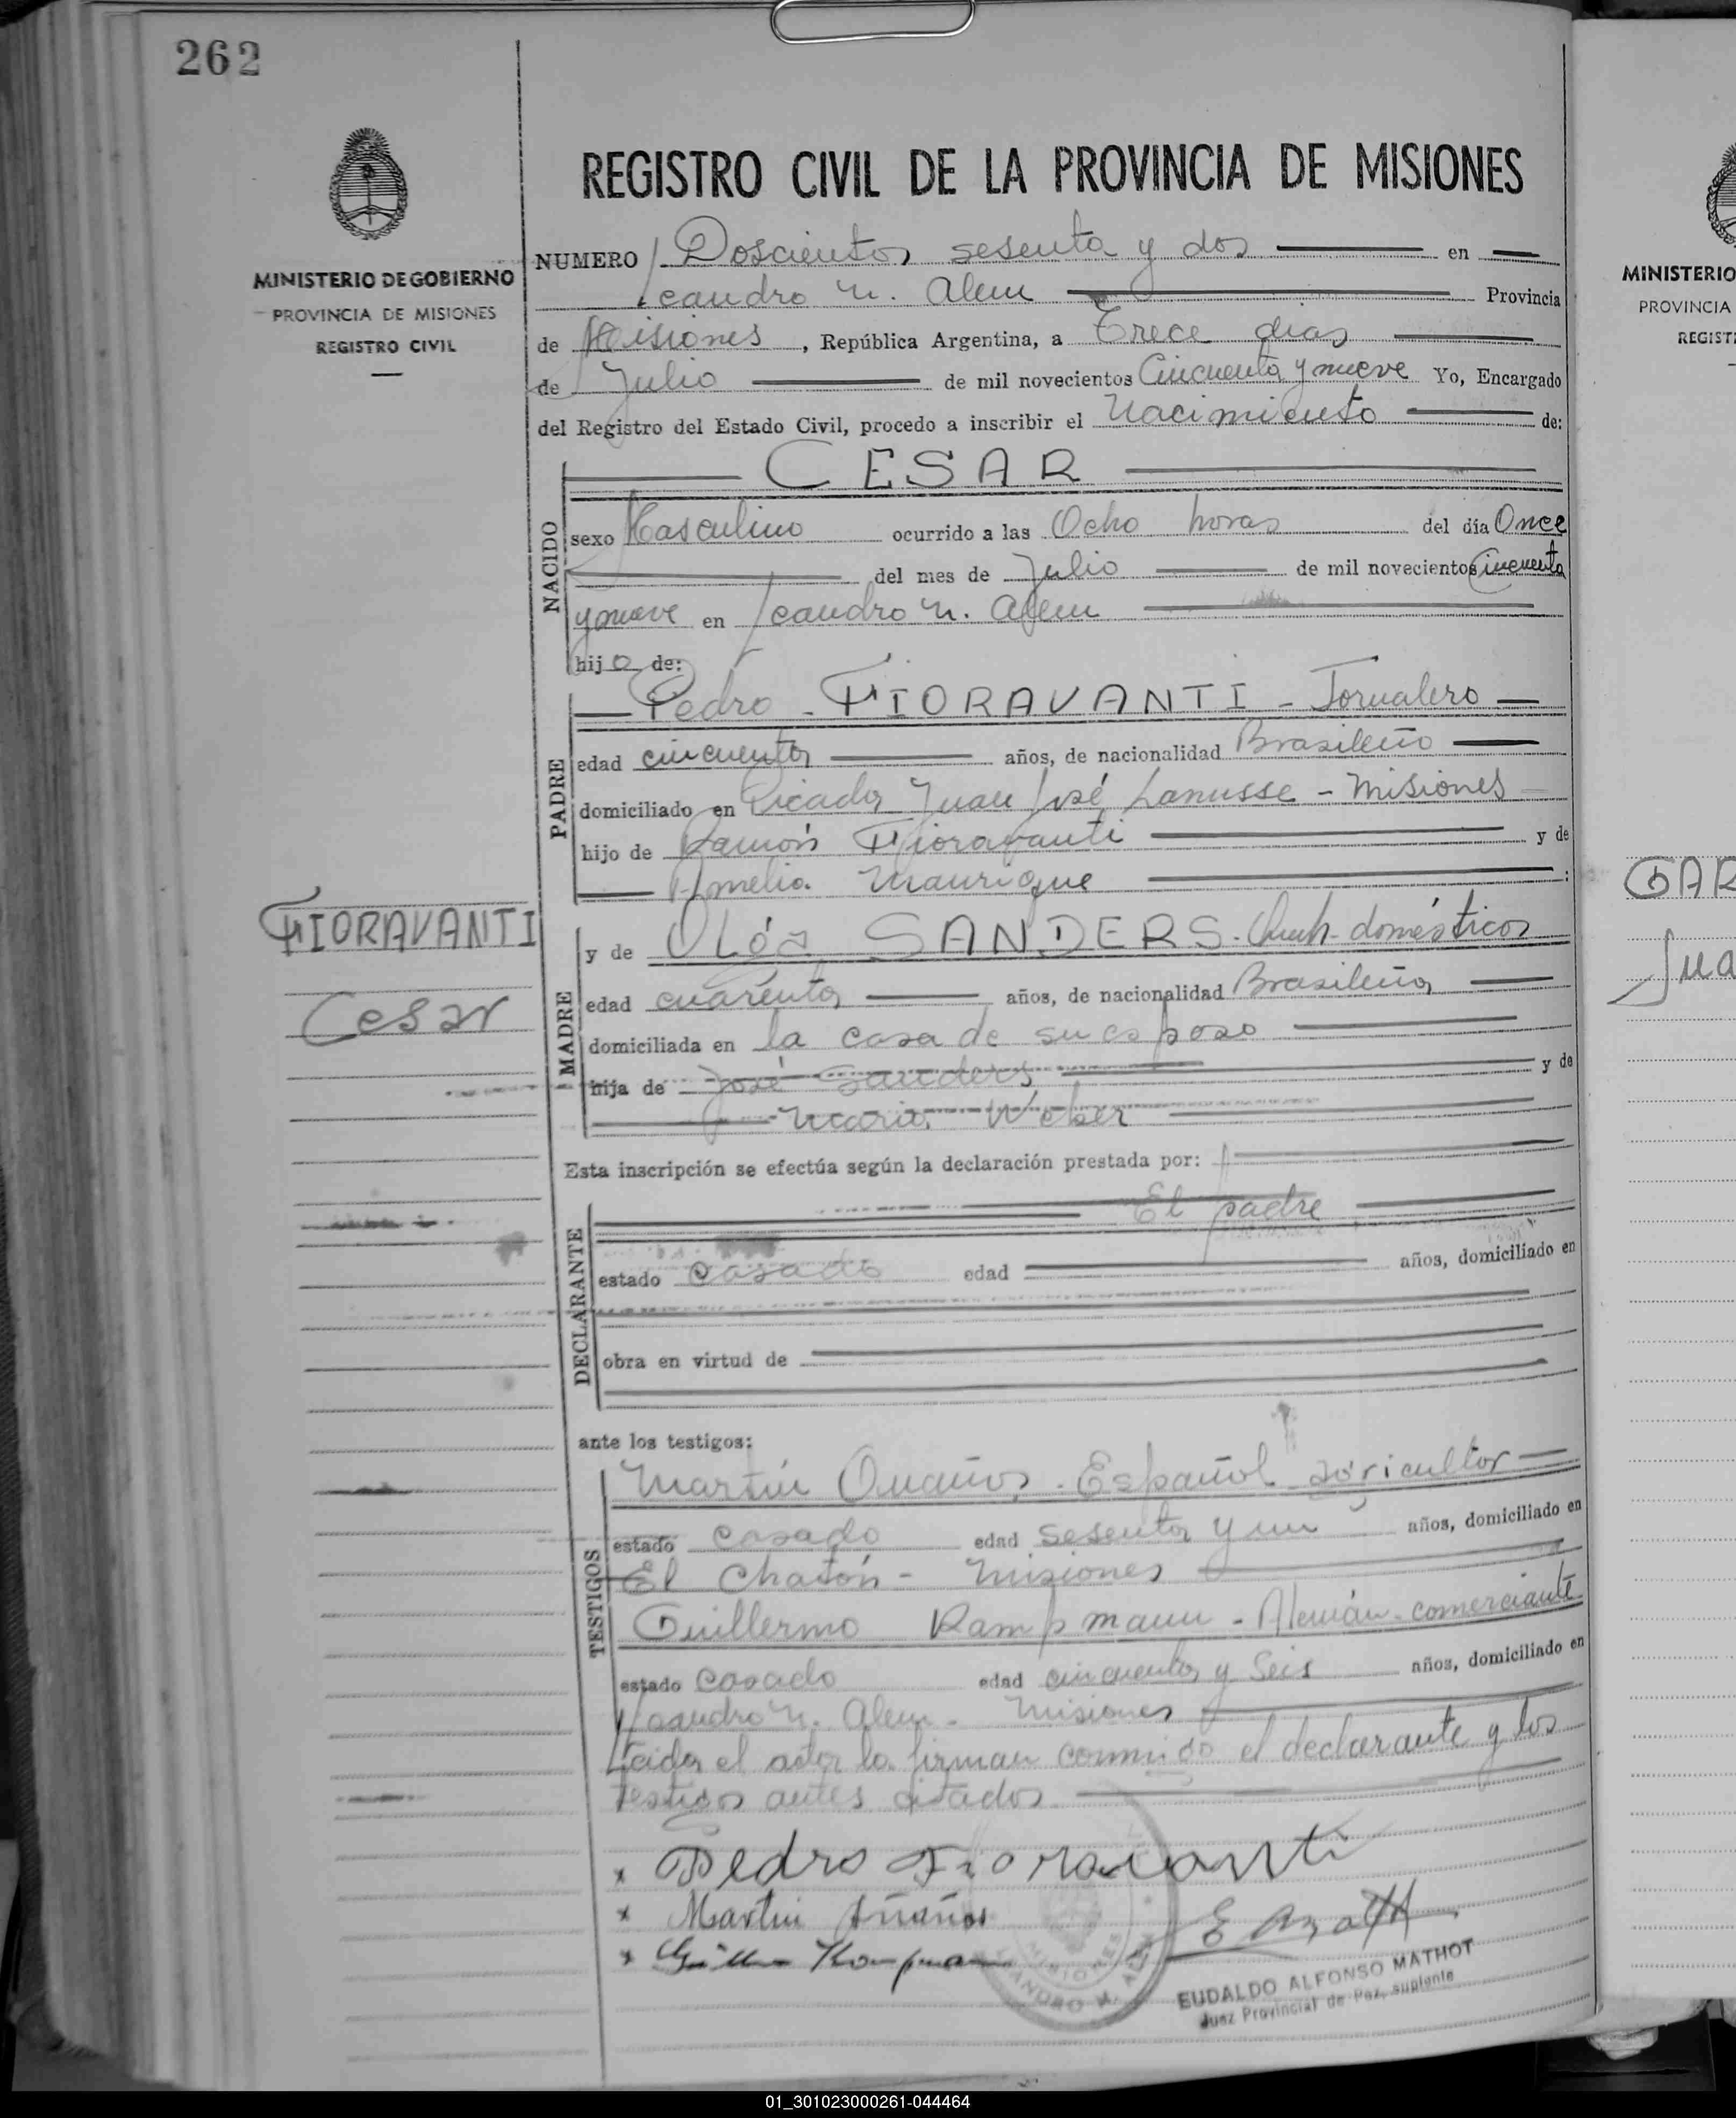 262
REGISTRO CIVIL DE LA PROVINCIA DE MISIONES
MINISTERIO DE GOBIERNO
PROVINCIA DE MISIONES
REGISTRO CIVIL
NUMERO Doscientos sesenta y dos en
Leandro N. Alem Provincia
de Misiones, República Argentina, a Trece dias
de Julio de mil novecientos Cincuenta y nueve Yo, Encargado
del Registro del Estado Civil, procedo a inscribir el Nacimiento de:
NACIDO
CESAR
sexo Masculino ocurrido a las Ocho horas del día Once
del mes de Julio de mil novecientos Cincuenta
y nueve en Leandro N. Alem
hijo de:
PADRE
Pedro - FIORAVANTI - Jornalero
edad cincuenta años, de nacionalidad Brasileño
domiciliado en Picada Juan José Lanusse - Misiones
hijo de Ramón Fioravanti y de
Amelia Manrique :
FIORAVANTI
Cesar
MADRE
y de Olga SANDERS. Queh. domésticos
edad cuarenta años, de nacionalidad Brasileña
domiciliada en la casa de su esposo
hija de José Sanders y de
Maria Weber
Esta inscripción se efectúa según la declaración prestada por:
DECLARANTE
El padre
estado Casado edad años, domiciliado en
obra en virtud de
ante los testigos:
TESTIGOS
Martín Español agricultor
estado casado edad sesenta y un años, domiciliado en
El Chatón - Misiones
Guillermo Kampmann - Alemán - comerciante
estado casado edad cincuenta y seis años, domiciliado en
Leandro N. Alem - Misiones
Leida el acta la firman conmigo el declarante y los
testigos antes citados
x Pedro Fioravanti
x Martin
x
MISIONES
LEANDRO N. ALEM
EUDALDO ALFONSO MATHOT
Juez Provincial de Paz, suplente
MINISTERIO
PROVINCIA
REGIST
GAR
Jua
01_301023000261-044464